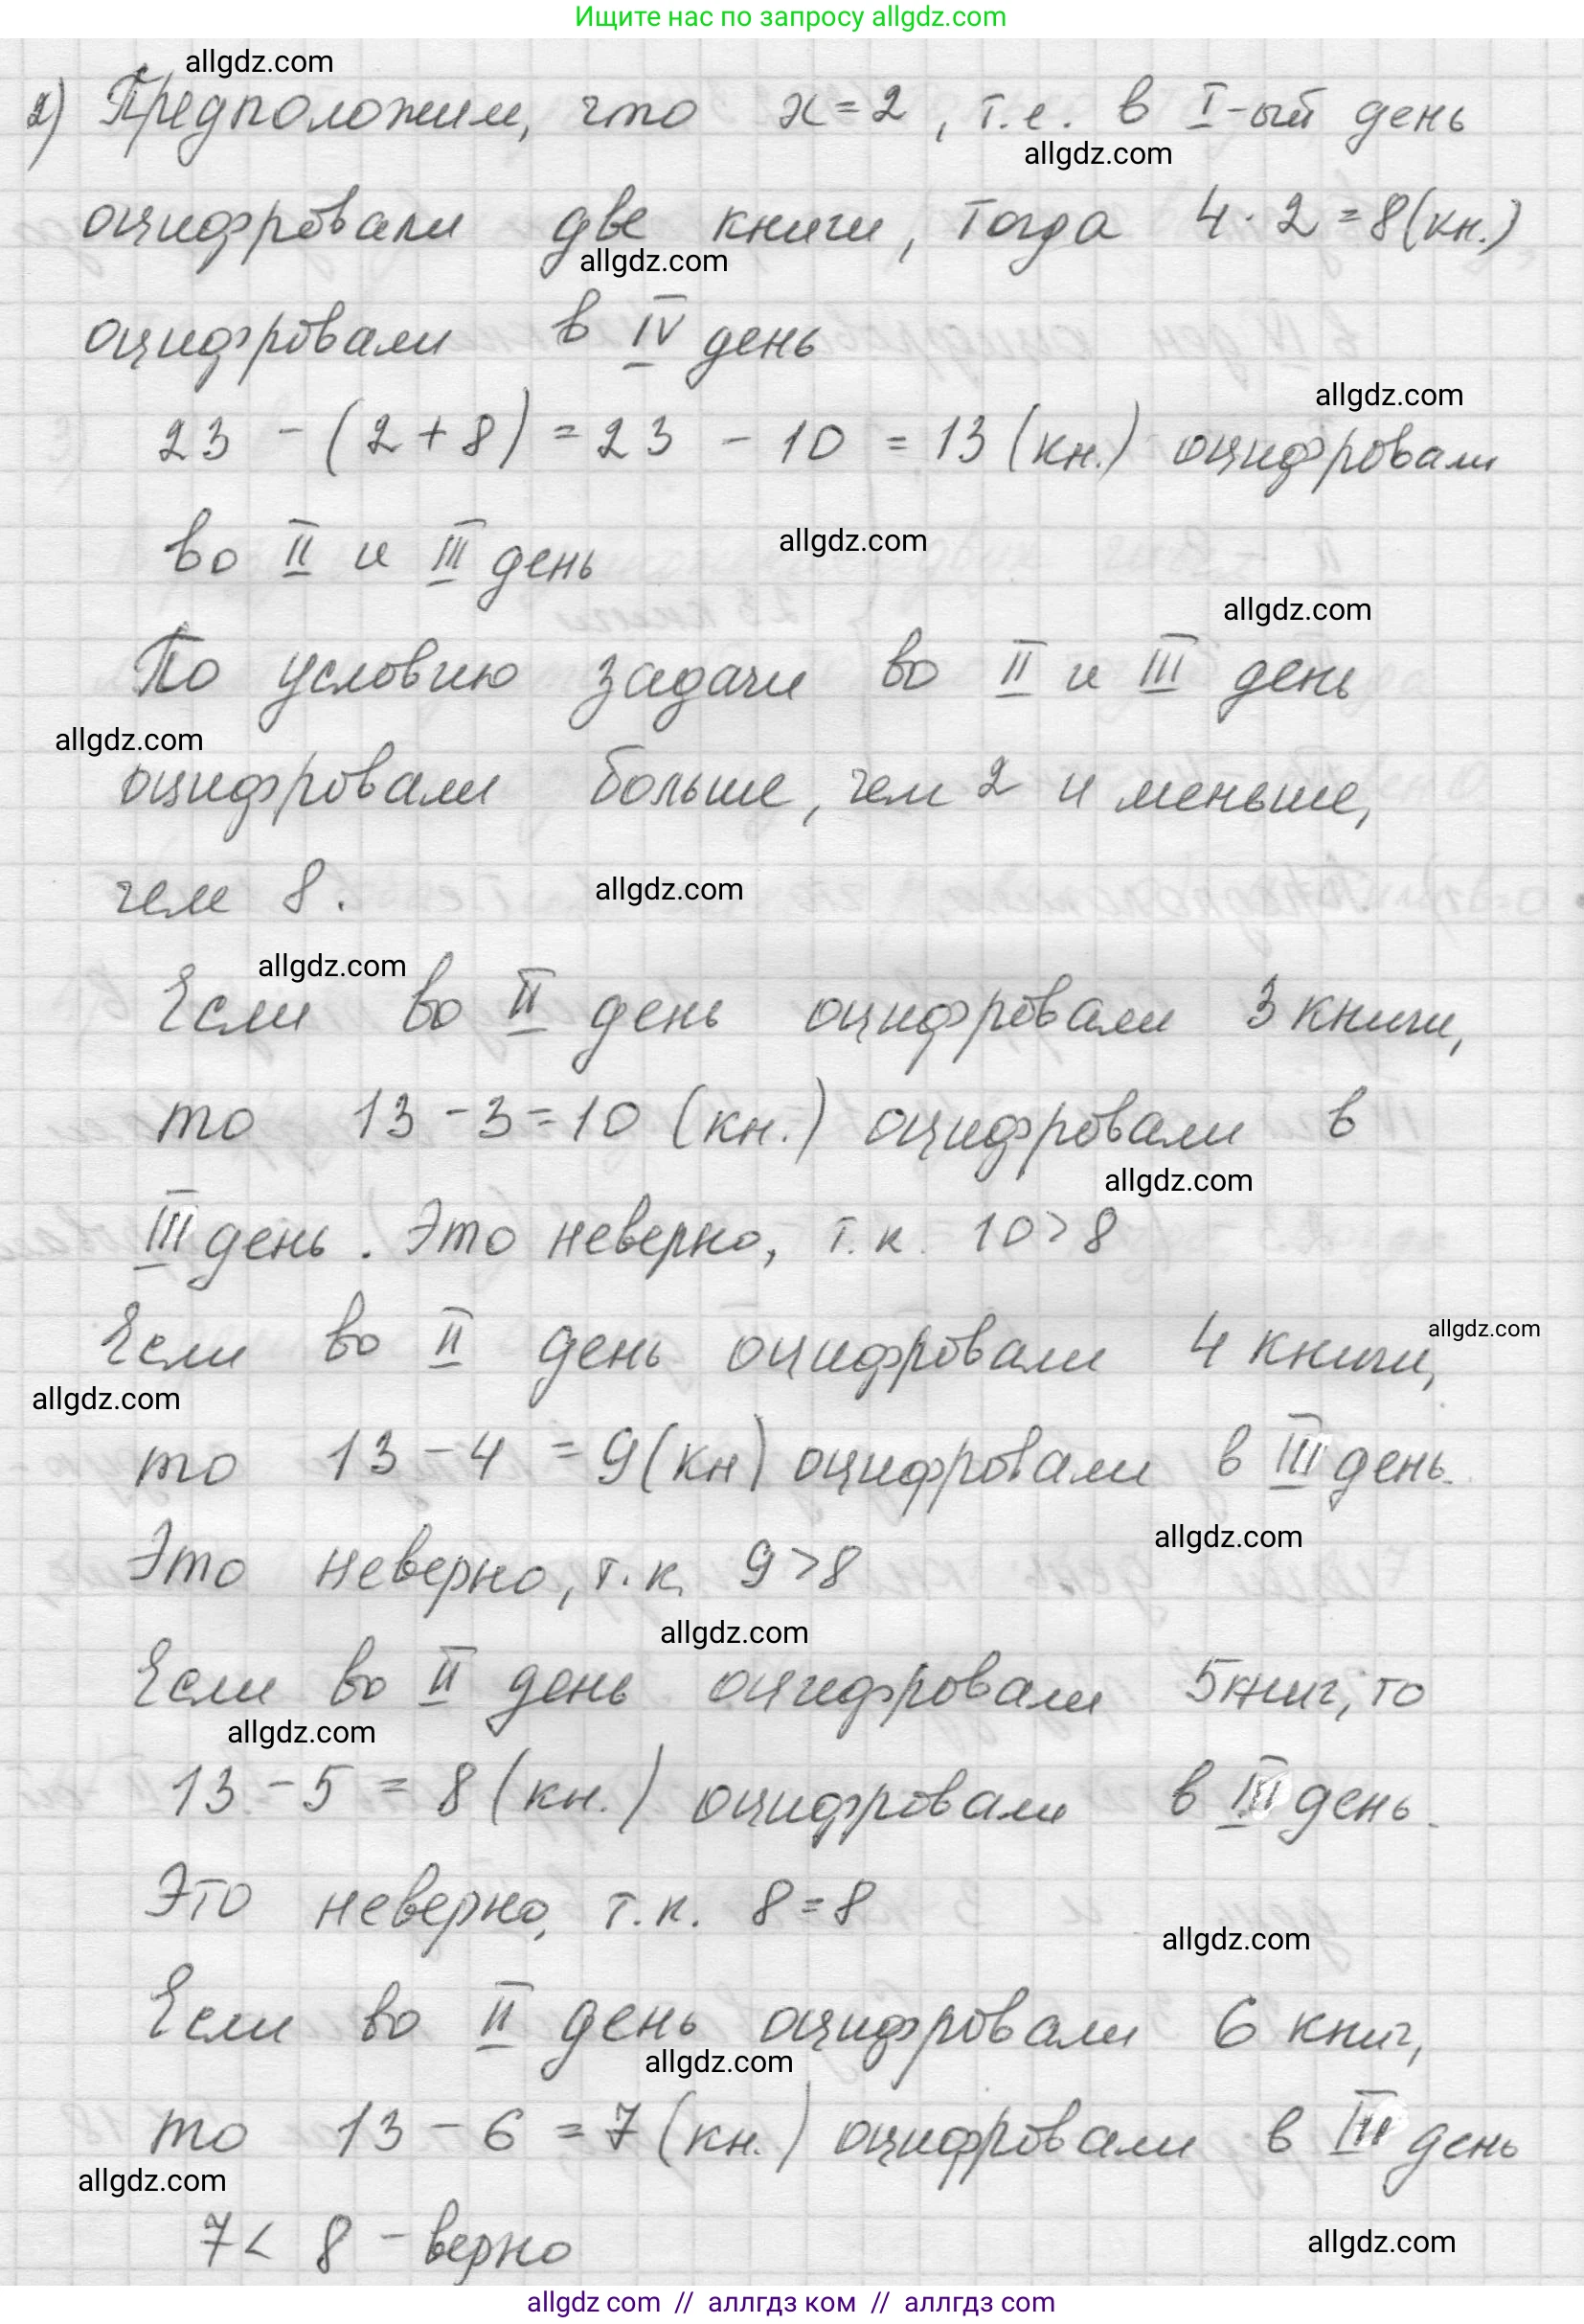 Ищите нас по запросу allgdz.com
allgdz.com
2) Предположим, что x=2, т.е. в I-ый день
allgdz.com
оцифровали две книги, тогда 4·2=8(кн.)
allgdz.com
оцифровали в IV день
allgdz.com
23-(2+8)=23-10=13(кн.) оцифровали
во II и III день
allgdz.com
allgdz.com
По условию задачи во II и III день
allgdz.com
оцифровали больше, чем 2 и меньше,
чем 8.
allgdz.com
allgdz.com
Если во II день оцифровали 3 книги,
то 13-3=10 (кн.) оцифровали в
allgdz.com
III день. Это неверно, т.к. 10>8
allgdz.com
Если во II день оцифровали 4 книги,
allgdz.com
то 13-4=9(кн) оцифровали в III день.
allgdz.com
Это неверно, т.к. 9>8
allgdz.com
Если во II день оцифровали 5книг, то
allgdz.com
13-5=8(кн.) оцифровали в III день.
Это неверно, т.к. 8=8
allgdz.com
Если во II день оцифровали 6 книг,
allgdz.com
то 13-6=7(кн.) оцифровали в III день
allgdz.com
7<8-верно
allgdz.com
allgdz com // аллгдз ком // аллгдз com